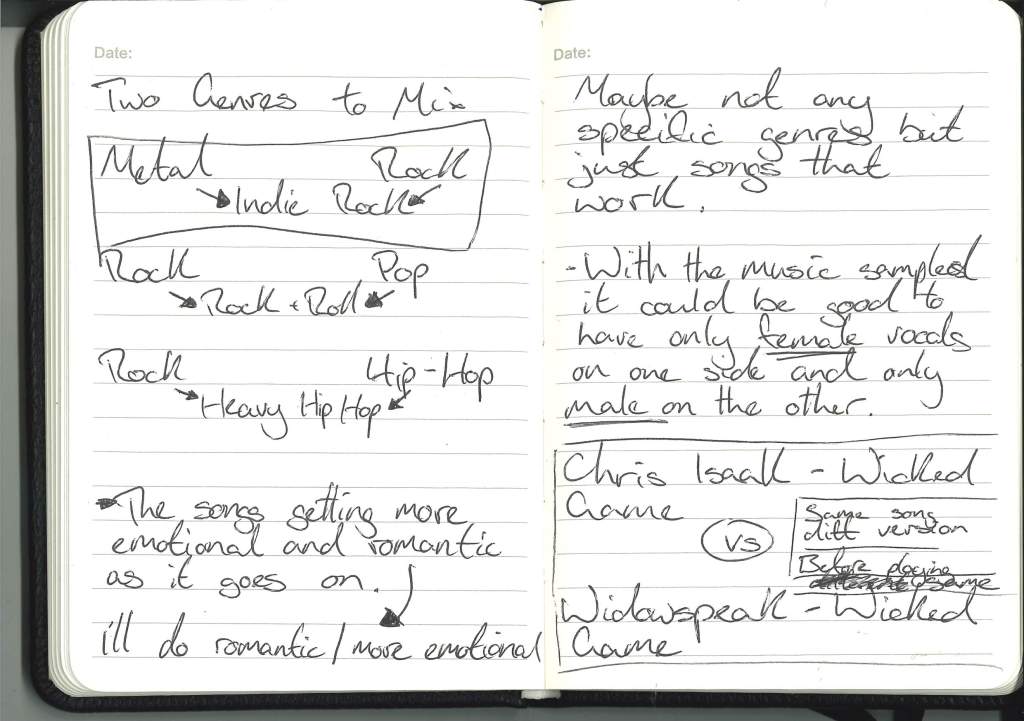 Date:
Two Genres to Mix
Metal Rock
Indie Rock
Rock Pop
Rock + Roll
Rock Hip-Hop
Heavy Hip Hop
The songs getting more
emotional and romantic
as it goes on.
i'll do romantic/more emotional
Date:
Maybe not any
specific genres but
just songs that
work.
- With the music sampled
it could be good to
have only female vocals
on one side and only
male on the other.
Chris Isaak - Wicked
Game
vs
Same song
diff version
Before playing
same
Widowspeak - Wicked
Game